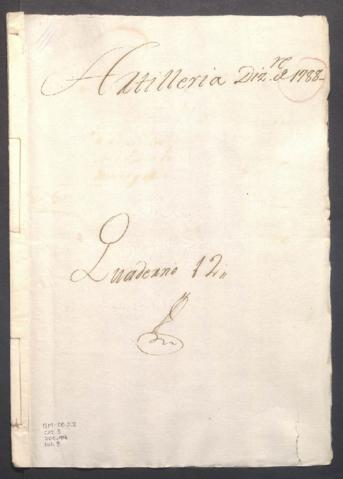 Artilleria Diz.re de 1788.
Quaderno 12